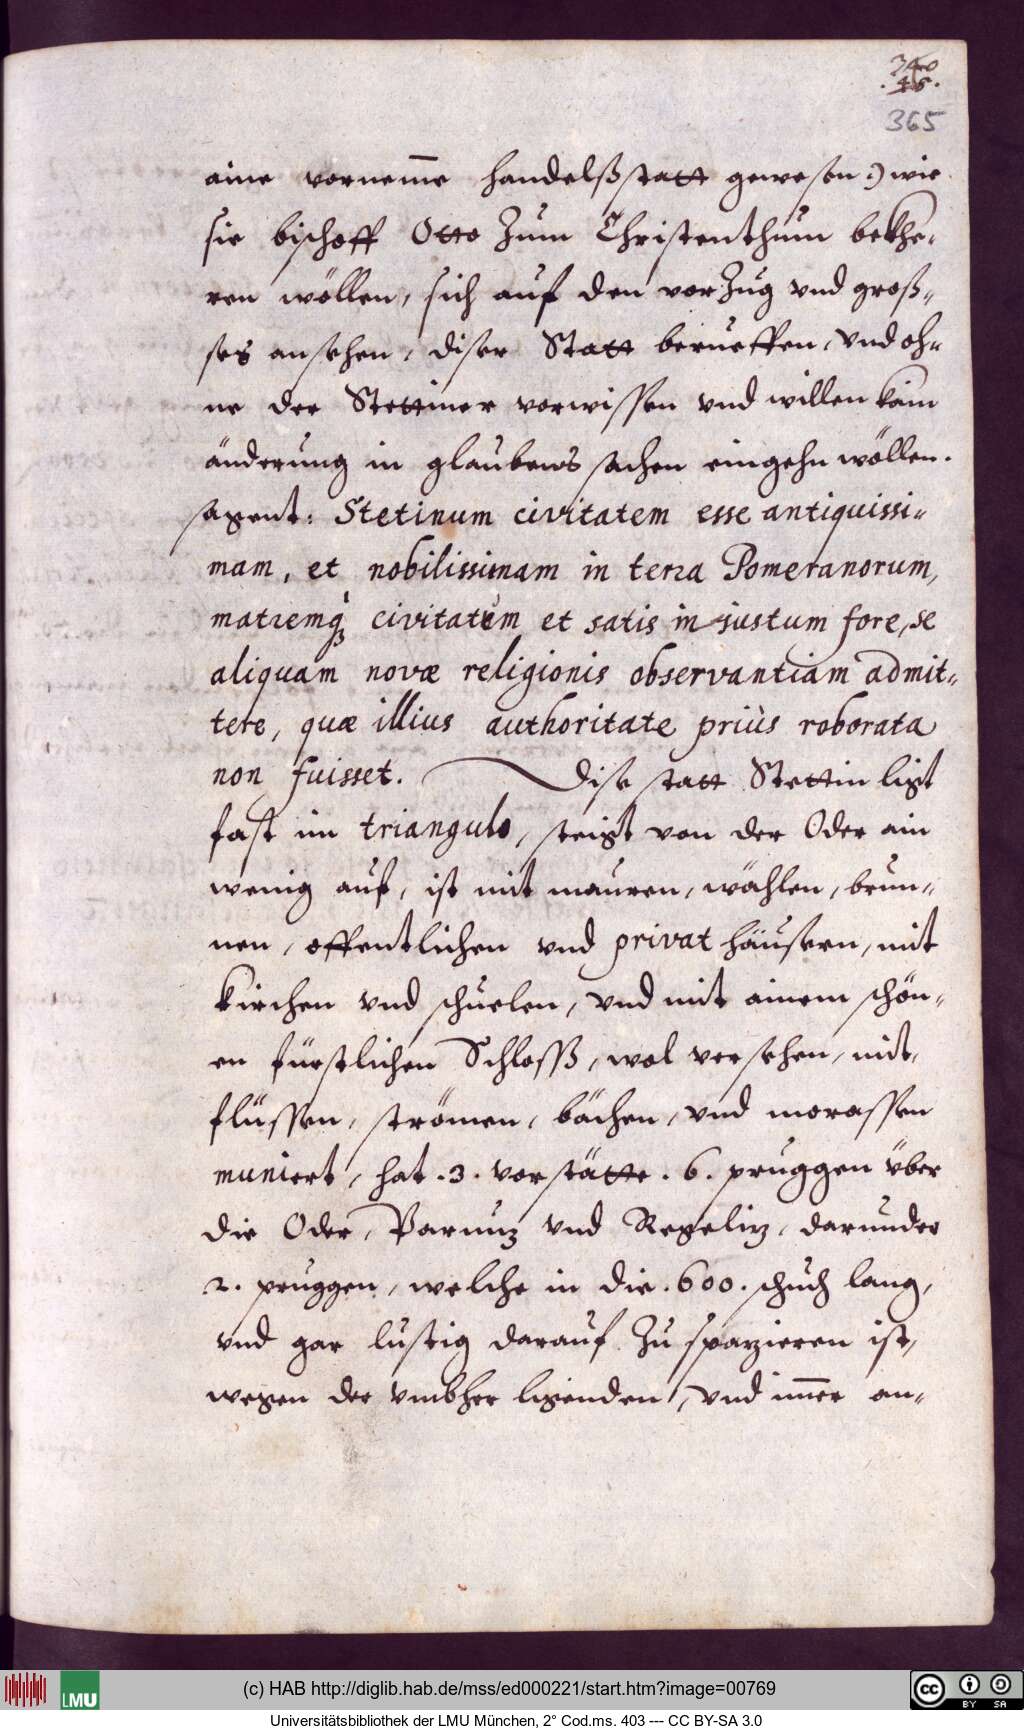 340
45.
365
aine vornem̄e handelßstatt gewesen :) wie
sie bischoff Otto Zum Christenthum bekhe-
ren wöllen, sich auf den vorZug vnd groß-
ses ansehen, diser Statt berueffen, vnd oh-
ne der Stettiner vorwissen vnd willen kain
änderung in glaubens sachen eingehn wöllen.
sagent: Stetinum civitatem esse antiquissi-
mam, et nobilissimam in terra Pomeranorum,
matremq́ꝫ civitatum et satis iniustum fore, se
aliquam novæ religionis observantiam admit-
tere, quæ illius authoritate priùs roborata
non fuisset. Dise statt Stettin ligt
fast im triangulo, steigt von der Oder ain
wenig auf, ist mit mauren, wählen, brun-
nen, offentlichen vnd privat häusern, mit
kirchen vnd schuelen, vnd mit ainem schön-
en fürstlichen Schloß, wol versehen, mit
flüssen, strömen, bächen, vnd morassen
muniert, hat .3. vorstätte .6. pruggen über
die Oder, Parnitz vnd Regelitz, darunder
2. pruggen, welche in die .600. schuch lang,
vnd gar lustig darauf Zu sparzieren ist,
wegen der vmbher ligenden, vnd im̄er an-
(c) HAB http://diglib.hab.de/mss/ed000221/start.htm?image=00769
LMU
cc BY SA
Universitätsbibliothek der LMU München, 2° Cod.ms. 403 --- CC BY-SA 3.0